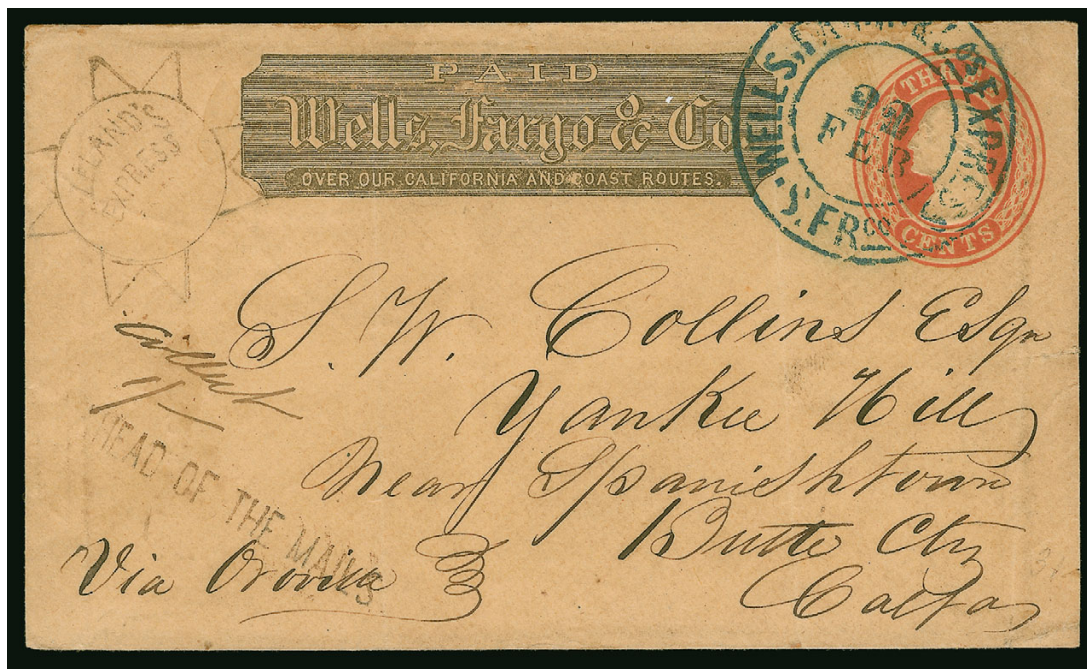 PAID
Wells, Fargo & Co
OVER OUR CALIFORNIA AND COAST ROUTES.
WELLS, FARGO & Cos EXPRESS
22
FEB
S. FRco
THREE
CENTS
LELAND'S
EXPRESS
Collect
1/-
AHEAD OF THE MAILS
S. W. Collins Esqr
Yankee Hill
Near Spanishtown
Butte Cty
Calfa
Via Oroville